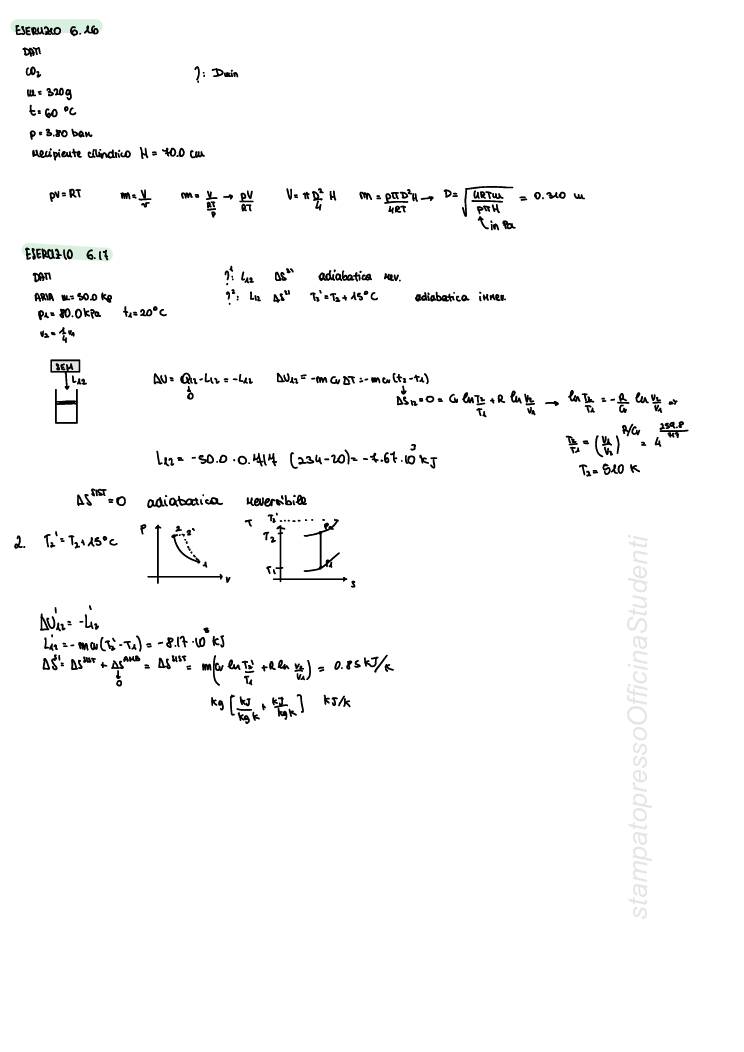 ESERCIZIO 6.16
DATI
CO₂ ?: Dmin
m = 320g
t = 60 °C
p = 3.80 bar
recipiente cilindrico H = 70.0 cm
pv = RT m = V/v m = V/(RT/p) → pV/RT V = π D²/4 H m = pπD²H/4RT → D = √(4RTm/pπH) = 0.210 m
↑ in Pa
ESERCIZIO 6.17
DATI ?¹: L₁₂ ΔSˢⁱ adiabatica rev.
ARIA m = 50.0 kg ?²: L₁₂ ΔSˢⁱ T₂' = T₂ + 15°C adiabatica irrev.
p₁ = 80.0 kPa t₁ = 20°C
v₂ = 1/4 v₁
SEM
L₁₂
ΔU = Q₁₂ - L₁₂ = -L₁₂ ΔU₁₂ = -m cv ΔT = -m cv (t₂ - t₁)
0
ΔS₁₂ = 0 = cv ln T₂/T₁ + R ln v₂/v₁ → ln T₂/T₁ = -R/cv ln v₂/v₁ ⇒
T₂/T₁ = (v₁/v₂)^(R/cv) = 4^(
T₂ = 510 K
L₁₂ = -50.0 · 0.717 (234-20) = -7.67·10³ kJ
ΔSˢⁱˢᵀ = 0 adiabatica reversibile
2. T₂' = T₂ + 15°C
P 2 2' 1 v
T T₂' T₂ T₁ P₂ P₁ s
ΔU₁₂' = -L₁₂'
L₁₂' = -m cv (T₂' - T₁) = -8.17·10³ kJ
ΔSˢⁱ = ΔSˢⁱˢᵀ + ΔSᴬᴹᴮ = ΔSˢⁱˢᵀ = m(cv ln T₂'/T₁ + R ln v₂/v₁) = 0.85 kJ/K
0
kg [kJ/kg K + kJ/kg K] kJ/K
stampatopressoOfficinaStudenti